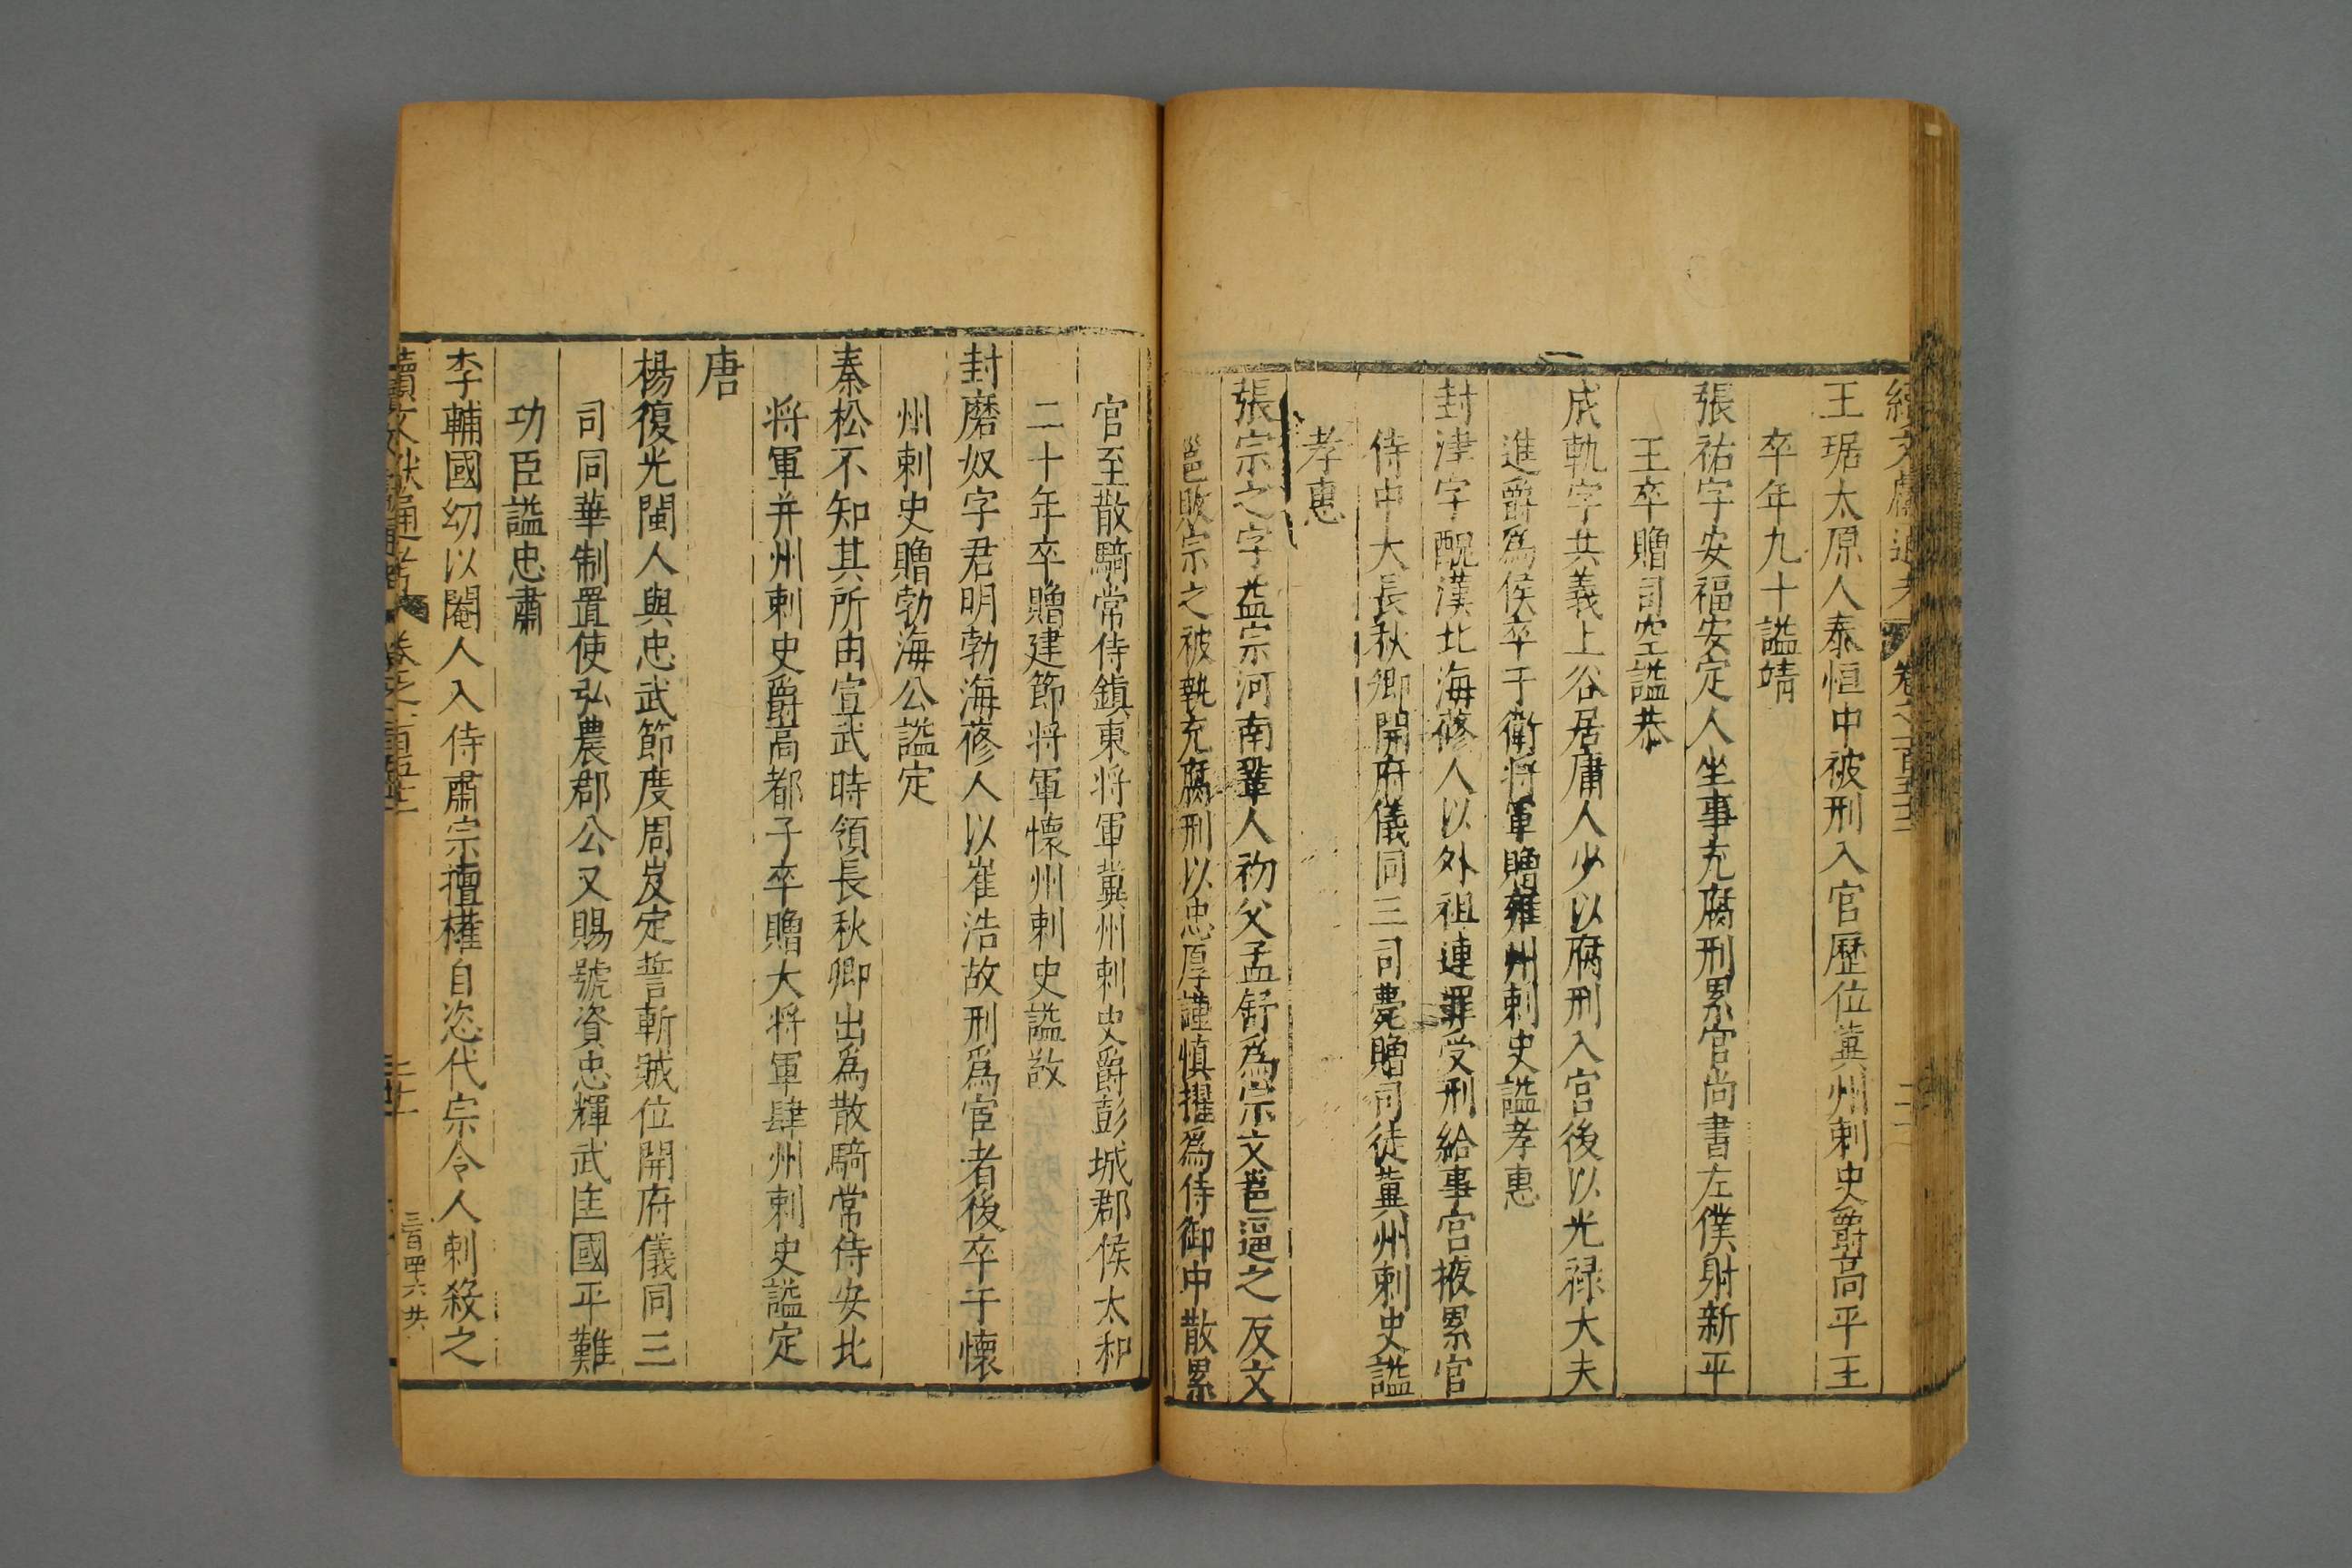 續文獻通考 卷之一百五十三
王琚太原人泰恒中被刑入官歷位冀州刺史爵高平王
卒年九十謚靖
張祐字安福安定人坐事充腐刑累官尚書左僕射新平
王卒贈司空謚恭
成軌字共義上谷居庸人少以腐刑入宮後以光祿大夫
進爵爲侯卒于衛將軍贈雍州刺史謚孝惠
封津字醜漢北海蓚人以外祖連罪受刑給事宮掖累官
侍中大長秋卿開府儀同三司薨贈司徒冀州刺史謚
孝惠
張宗之字益宗河南鞏人初父孟舒爲宗文邕逼之反文
邕敗宗之被執充腐刑以忠厚謹慎擢爲侍御中散累
官至散騎常侍鎮東將軍冀州刺史爵彭城郡侯太和
二十年卒贈建節將軍懷州刺史謚敬
封磨奴字君明勃海蓚人以崔浩故刑爲宦者後卒于懷
州刺史贈勃海公謚定
秦松不知其所由宣武時領長秋卿出爲散騎常侍安北
將軍并州刺史爵高都子卒贈大將軍肆州刺史謚定
唐
楊復光閩人與忠武節度周岌定誓斬賊位開府儀同三
司同華制置使弘農郡公又賜號資忠輝武匡國平難
功臣謚忠肅
李輔國幼以閹人入侍肅宗擅權自恣代宗令人刺殺之
續文獻通考 卷之一百五十三
三百四十六 共